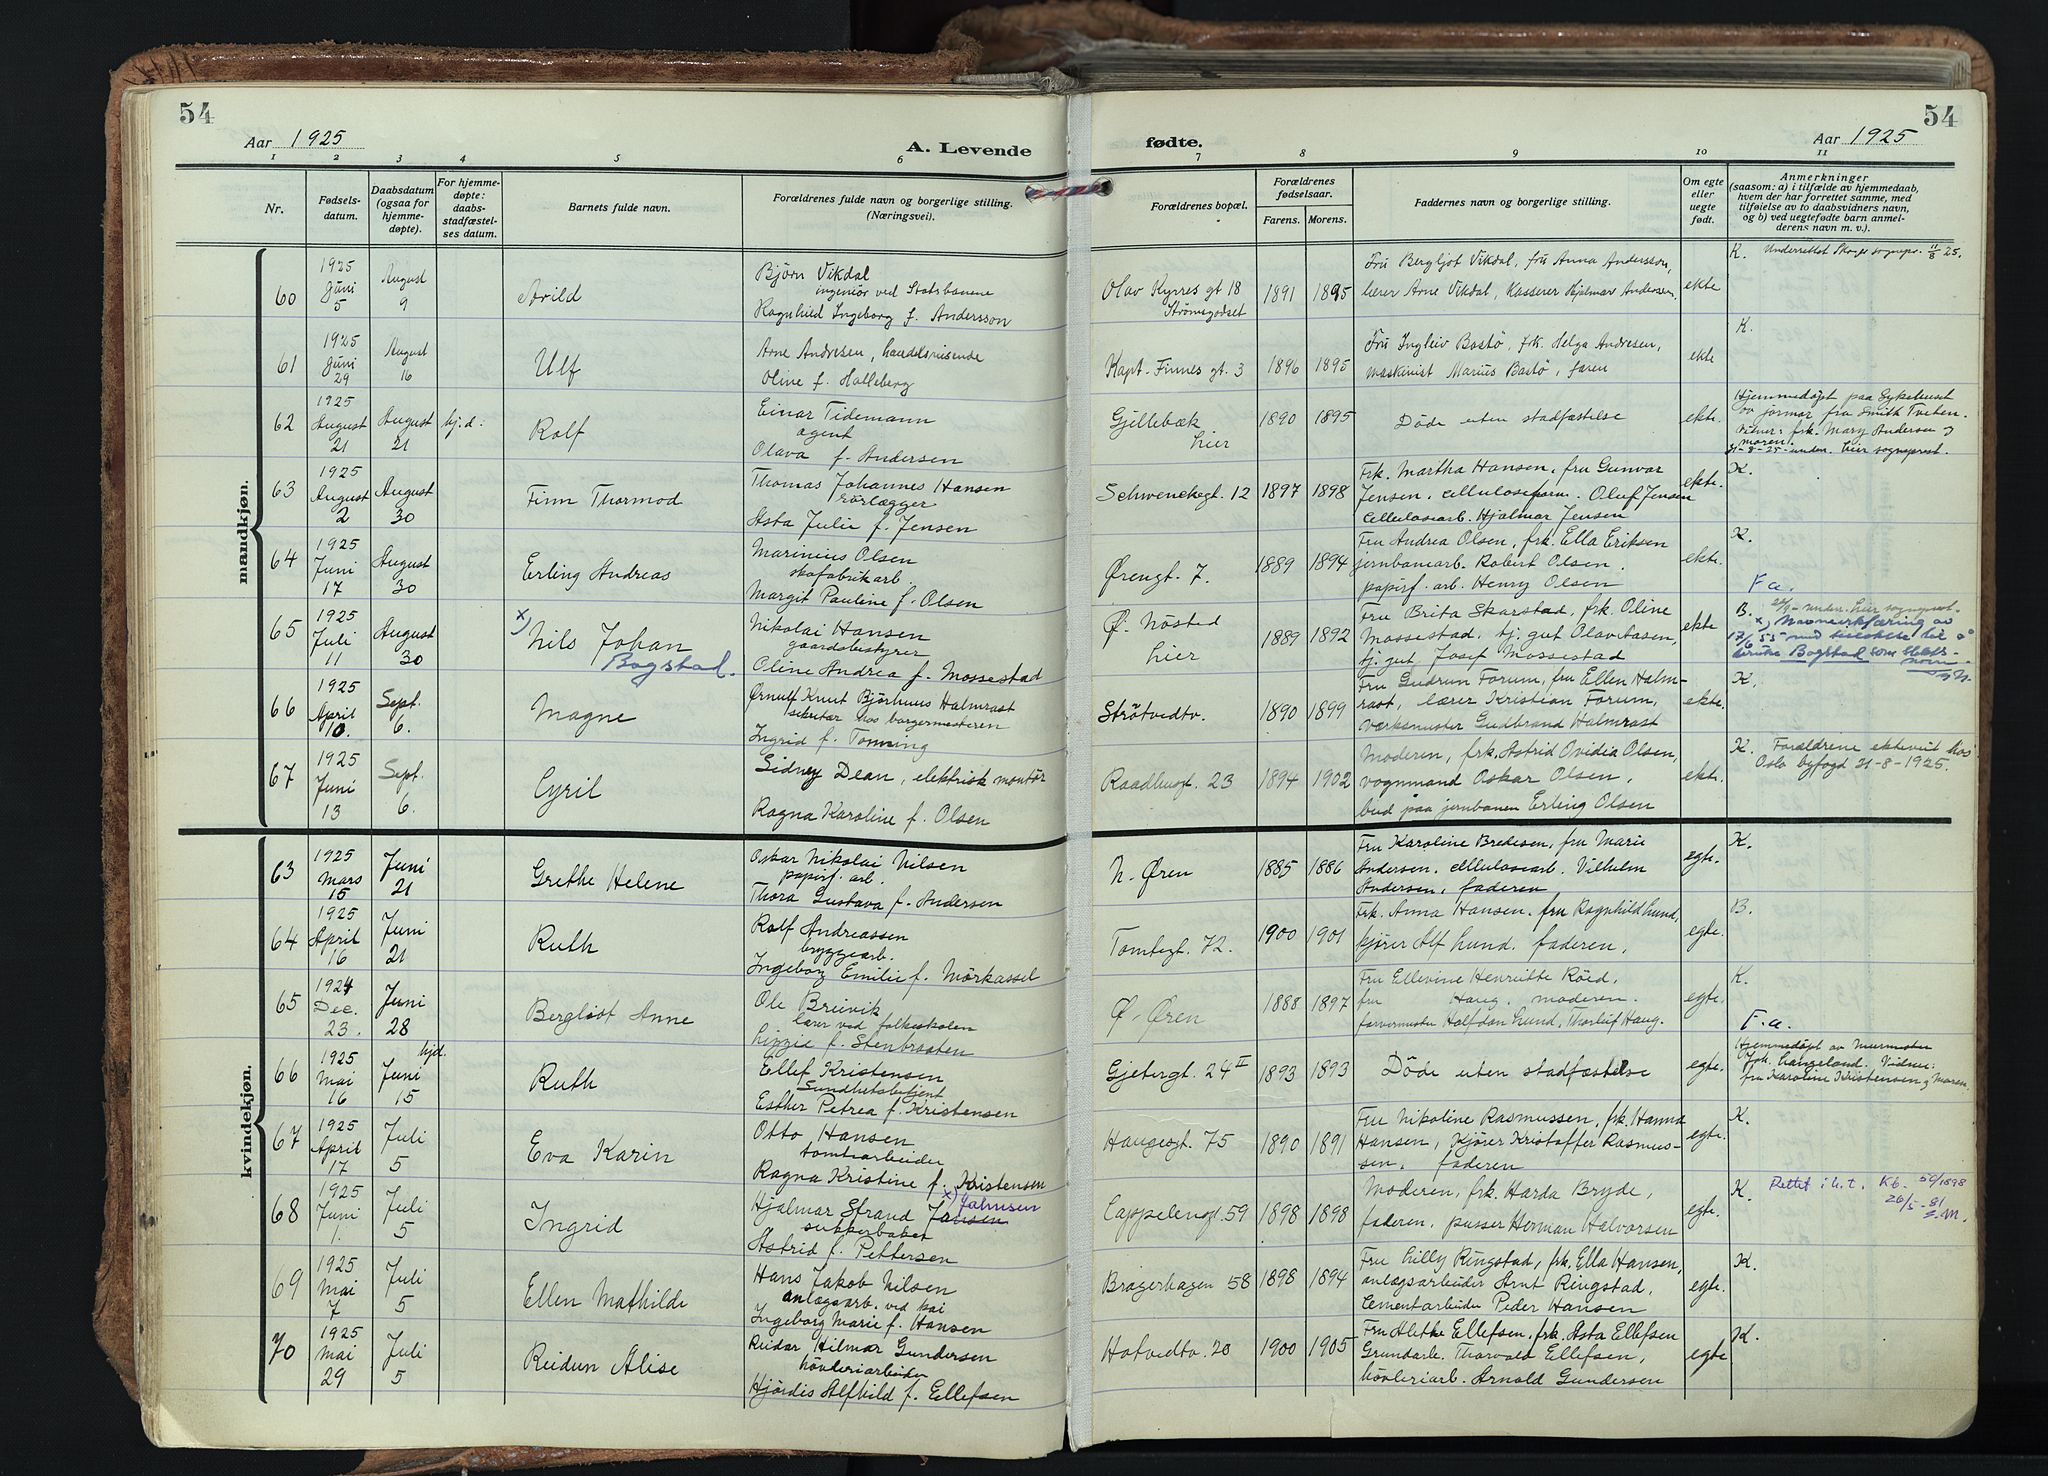 54
54
Aar 1925
A. Levende
fødte.
Aar 1925
1 2 3 4 5 6 7 8 9 10 11
Nr.
Fødsels-
datum.
Daabsdatum
(ogsaa for
hjemme-
døpte).
For hjemme-
døpte:
daabs-
stadfæstel-
ses datum.
Barnets fulde navn.
Forældrenes fulde navn og borgerlige stilling.
(Næringsvei).
Forældrenes bopæl.
Forældrenes
fødselsaar.
Farens. Morens.
Faddernes navn og borgerlige stilling.
Om egte
eller
uegte
født.
Anmerkninger
(saasom: a) i tilfælde av hjemmedaab,
hvem der har forrettet samme, med
tilføielse av to daabsvidners navn,
og b) ved uegtefødte barn anmel-
derens navn m. v.).
mandkjøn.
60
1925
Juni
5
August
9
Arild
Bjørn Vikdal
ingeniør ved Statsbanene
Ragnhild Ingeborg f. Andersson
Olav Kyrres gt 18
Strømsgodset
1891 1895
Fru Bergljot Vikdal, fru Anna Andersson,
lærer Arne Vikdal, Kasserer Hjalmar Andersen.
ekte
K. Underrettet sognepr. 11/8 25.
61
1925
Juni
29
August
16
Ulf
Arne Andresen, handelsreisende
Oline f. Halleberg
Kapt. Finnes gt. 3
1896 1895
Fru Ingleiv Bastø, frk. Helga Andresen,
maskinist Marius Bastø, faren
ekte
K.
62
1925
August
21
August
21
hj.d.
Rolf
Einar Tidemann
agent
Olava f. Andersen
Gjellebæk
Lier
1890 1895
Døde uten stadfæstelse
ekte.
Hjemmedøpt paa Sykehuset
av jormor fru Smith Tveten.
Vidner: frk. Mary Andersen og
moren.
31-8-25 under. Lier sogneprest.
63
1925
August
2
August
30
Finn Thormod
Thomas Johannes Hansen
rørlægger
Asta Julie f. Jensen
Schwenckegt. 12
1897 1898
Frk. Martha Hansen, fru Gunvor
Jensen. cellulosearb. Oluf Jensen
Cellulosearb. Hjalmar Jensen
ekte.
K.
64
1925
Juni
17
August
30
Erling Andreas
Marinius Olsen
skofabrikarb.
Margit Pauline f. Olsen
Ørengt. 7.
1889 1894
Fru Andrea Olsen, frk. Ella Eriksen
jernbanearb. Robert Olsen.
papirf. arb. Henry Olsen
ekte.
K.
65
1925
Juli
11
August
30
x) Nils Johan
Bogstad.
Nikolai Hansen
gaardsbestyrer
Oline Andrea f. Mossestad
Ø. Nøsted
Lier
1889 1892
Fru Brita Skarstad, frk. Oline
Mossestad. tj. gut Olav Aasen,
tj. gut Josef Mossestad
ekte
F a.
B. under. Lier sognepret.
x) Navneerklæring av
17/6 55 med beskikelse til å
bruke Bogstad som slekts-
navn.
66
1925
April
10.
Sept.
6.
Magne
Ørnulf Knut Bjørhuus Halmrast
sekretær hos borgermesteren
Ingrid f. Tonning
Strøtvedtv.
1890 1899
Fru Gudrun Forum, fru Ellen Halm-
rast, lærer Kristian Forum,
værksmester Gudbrand Halmrast
ekte.
K.
67
1925
Juni
13
Sept.
6.
Cyril
Sidney Dean, elektrisk montør
Ragna Karoline f. Olsen
Raadhusgt. 23
1894 1902
Moderen, frk. Astrid Ovidia Olsen,
vognmand Oskar Olsen,
bud paa jernbanen Erling Olsen
ekte.
K. Forældrene ekteviet hos
Oslo byfogd 21-8-1925.
kvindekjøn.
63
1925
Mars
15
Juni
21
Grethe Helene
Oskar Nikolai Nilsen
papirf. arb.
Thora Gustava f. Andersen
N. Øren
1885 1886
Fru Karoline Bredesen, fru Marie
Andersen. cellulosearb. Vilhelm
Andersen, faderen,
egte.
K.
64
1925
April
16
Juni
21
Ruth
Rolf Andreassen
bryggearb.
Ingeborg Emilie f. Mørkassel
Tomtegt. 72.
1900 1901
Frk. Anna Hansen. fru Ragnhild Lund,
kjører Alf Lund. faderen,
egte.
B.
65
1924
Dec.
23.
Juni
28
Bergliot Anne
Ole Breivik
lærer ved folkeskolen
Lizzie f. Stenbraaten
Ø. Øren
1888 1897
Fru Ellevine Henriette Røed,
fru Haug. moderen.
farvermester Halfdan Lund, Thorleif Haug.
egte.
K.
66
1925
Mai
16
Juni
15
hjd.
Ruth
Ellef Kristensen
Sundhetsbetjent
Esther Petrea f. Kristensen
Gjetergt. 24 II
1893 1893
Døde uten stadfæstelse
egte.
F. a.
Hjemmedøpt av Murmester
Joh. Langeland. Vidner:
fru Karoline Kristensen og Moren.
67
1925
April
17
Juli
5
Eva Karin
Otto Hansen
tomtearbeider
Ragna Kristine f. Kristensen
Haugesgt. 75
1890 1891
Fru Nikoline Rasmussen, frk. Hanna
Hansen, Kjører Kristoffer Rasmus-
sen. faderen
egte.
K.
68
1925
Juni
1.
Juli
5
Ingrid
Hjalmar Strand Jansen x) Johnsen
sukkerbaker
Astrid f. Pettersen
Cappelensgt. 59
1898 1898
Moderen, frk. Harda Bryde,
faderen, pusser Herman Halvorsen
egte.
K. Rettet i h. t. Kb. 50/1898
26/5-81
S.M.
69
1925
Mai
7
Juli
5
Ellen Mathilde
Hans Jakob Nilsen
anlægsarb. ved kai
Ingeborg Marie f. Hansen
Bragerhagen 58
1898 1894
Fru Lilly Ringstad, frk. Ella Hansen,
anlægsarbeider Arnt Ringstad,
Cementarbeider Peder Hansen
egte.
K.
70
1925
Mai
29
Juli
5
Reidun Alise
Reidar Hilmar Gundersen
høvleriarbeider
Hjørdis Alfhild f. Ellefsen
Hotvedtv. 20
1900 1905
Fru Alethe Ellefsen, frk. Asta Ellefsen
Grundarb. Thorvald Ellefsen,
høvleriarb. Arnold Gundersen
egte
K.